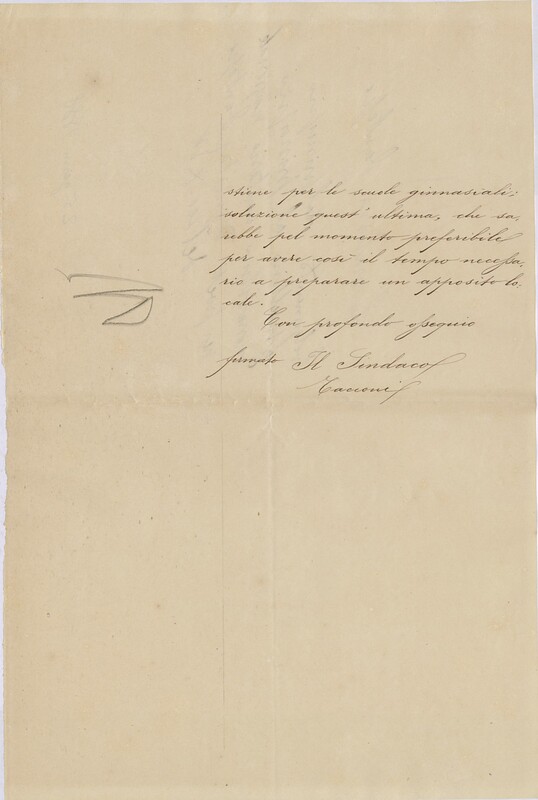 stiene per le scuole ginnasiali;
soluzione quest'ultima, che sa,
rebbe pel momento preferibile
per avere così il tempo necessa,
rio a preparare un apposito lo,
cale.
Con profondo ossequio
firmato Il Sindaco